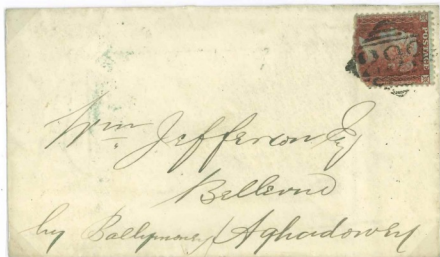 POSTAGE
Wm Jefferson Esq
Bellevue
by Ballymoney / Aghadowey